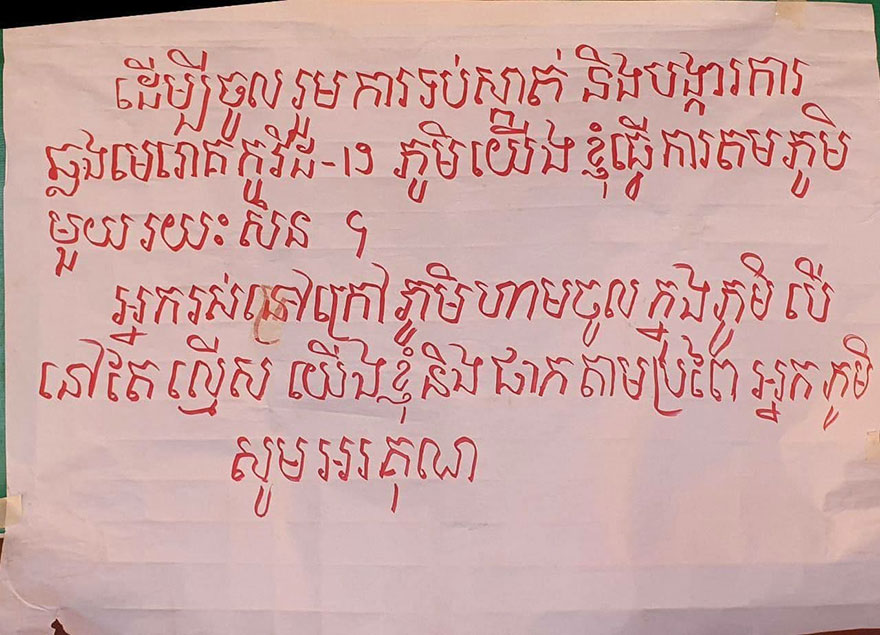 ដើម្បីចូលរួមការទប់ស្កាត់ និងបង្ការការ
ឆ្លងមេរោគកូវីដ-១៦ ភូមិយើងខ្ញុំធ្វើការតមភូមិ
មួយរយះសិន ។
អ្នករស់នៅក្រៅភូមិហាមចូលក្នុងភូមិ បើ
នៅតែល្មើស យើងខ្ញុំនិងផាកតាមប្រពៃអ្នកភូមិ
សូមអរគុណ